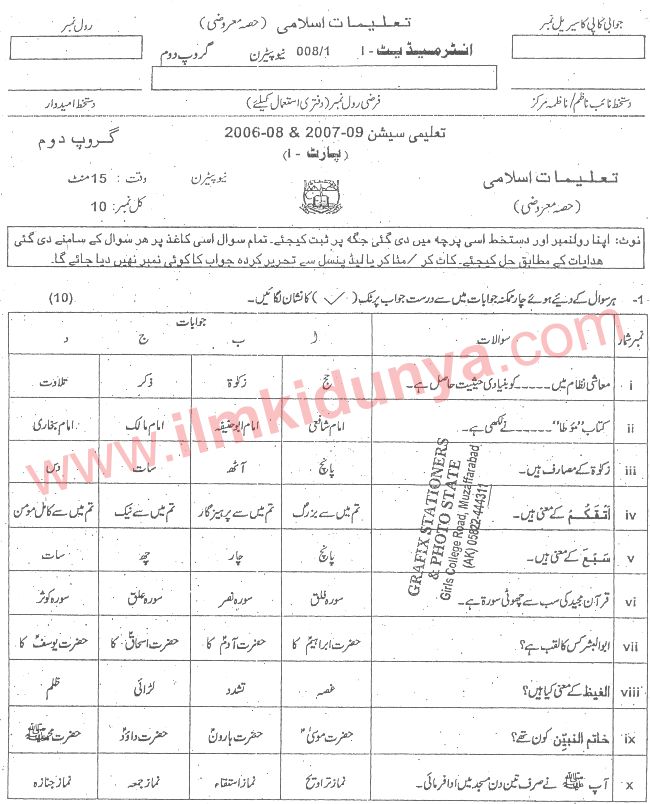 جوابی کاپی کا سیریل نمبر
تعلیمات اسلامی (حصہ معروضی)
رول نمبر
انٹرمیڈیٹ - I 008/1 نیو پیٹرن گروپ دوم
دستخط نائب ناظم/ناظمہ مرکز
فرضی رول نمبر (دفتری استعمال کیلئے)
دستخط امیدوار
تعلیمی سیشن 2007-09 & 2006-08
گروپ دوم
(پارٹ - i)
تعلیمات اسلامی
نیو پیٹرن
وقت : 15 منٹ
(حصہ معروضی)
کل نمبر: 10
نوٹ: اپنا رولنمبر اور دستخط اسی پرچہ میں دی گئی جگہ پر ثبت کیجئے۔ تمام سوال اسی کاغذ پر ھر سوال کے سامنے دی گئی
ھدایات کے مطابق حل کیجئے۔ کاٹ کر/مٹا کر یا لیڈ پنسل سے تحریر کردہ جواب کا کوئی نمبر نہیں دیا جائے گا۔
1- ہر سوال کے دئیے ہوئے چار ممکنہ جوابات میں سے درست جواب پر ٹک (✓) کا نشان لگائیں۔ (10)
نمبر شمار سوالات جوابات
ا ب ج د
i معاشی نظام میں ----- کو بنیادی حیثیت حاصل ہے۔ حج زکوٰۃ ذکر تلاوت
ii کتاب "مؤطا" ----- نے لکھی ہے۔ امام شافعی امام ابوحنیفہ امام مالک امام بخاری
iii زکوٰۃ کے مصارف ہیں۔ پانچ آٹھ سات دس
iv اَتْقٰکُمْ کے معنی ہیں۔ تم میں سے بزرگ تم میں سے پرہیزگار تم میں سے نیک تم میں سے کامل مومن
v سَبْعَ کے معنی ہیں۔ پانچ چار چھ سات
vi قرآن مجید کی سب سے چھوٹی سورۃ ہے۔ سورہ فلق سورہ نصر سورہ علق سورہ کوثر
vii ابوالبشر کس کا لقب ہے؟ حضرت ابراہیمؑ کا حضرت آدمؑ کا حضرت اسحاقؑ کا حضرت یوسفؑ کا
viii الغیظ کے معنی کیا ہیں؟ غصہ تشدد لڑائی ظلم
ix خاتم النبیّن کون تھے؟ حضرت موسیٰؑ حضرت ہارونؑ حضرت داؤدؑ حضرت محمدﷺ
x آپﷺ نے صرف تین دن مسجد میں ادا فرمائی۔ نماز تراویح نماز استسقاء نماز جمعہ نماز جنازہ
GRAFIX STATIONERS
& PHOTO STATE
Girls College Road, Muzaffarabad
(AK) 05822-444311
www.ilmkidunya.com